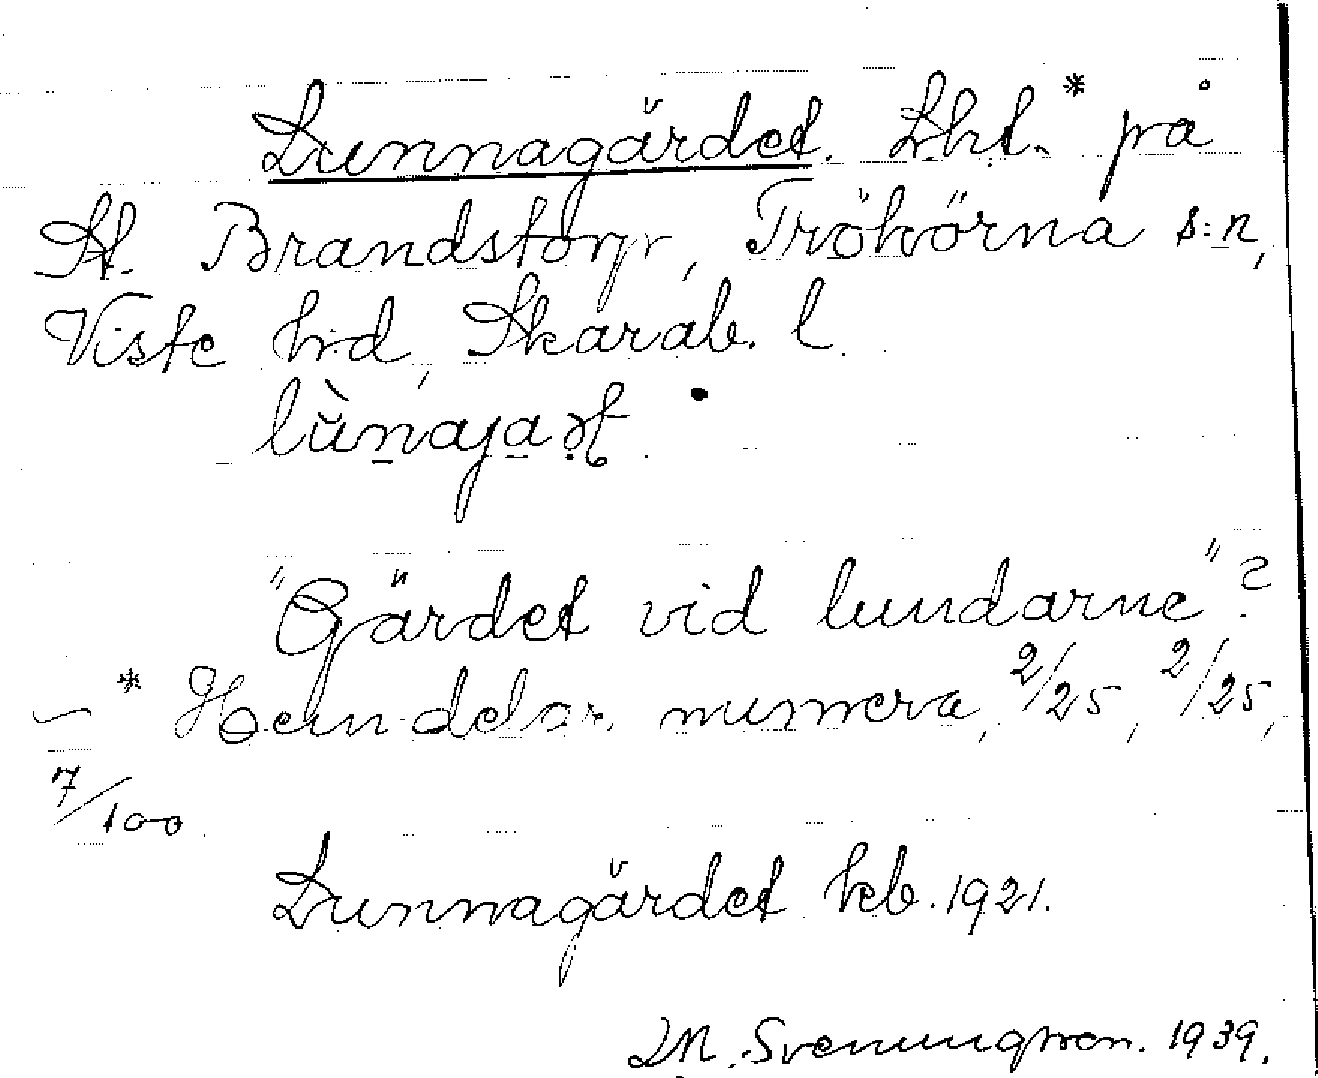 Lunnagärdet. Lht.* på
St. Brandstorp, Tråvörna s:n,
Viste h:d, Skarab. l.
"Gärdet vid lundarne"?
* Hemdelar numera, 2/25, 2/25,
7/100
Lunnagärdet kb. 1921.
M. Svenungsson. 1939.